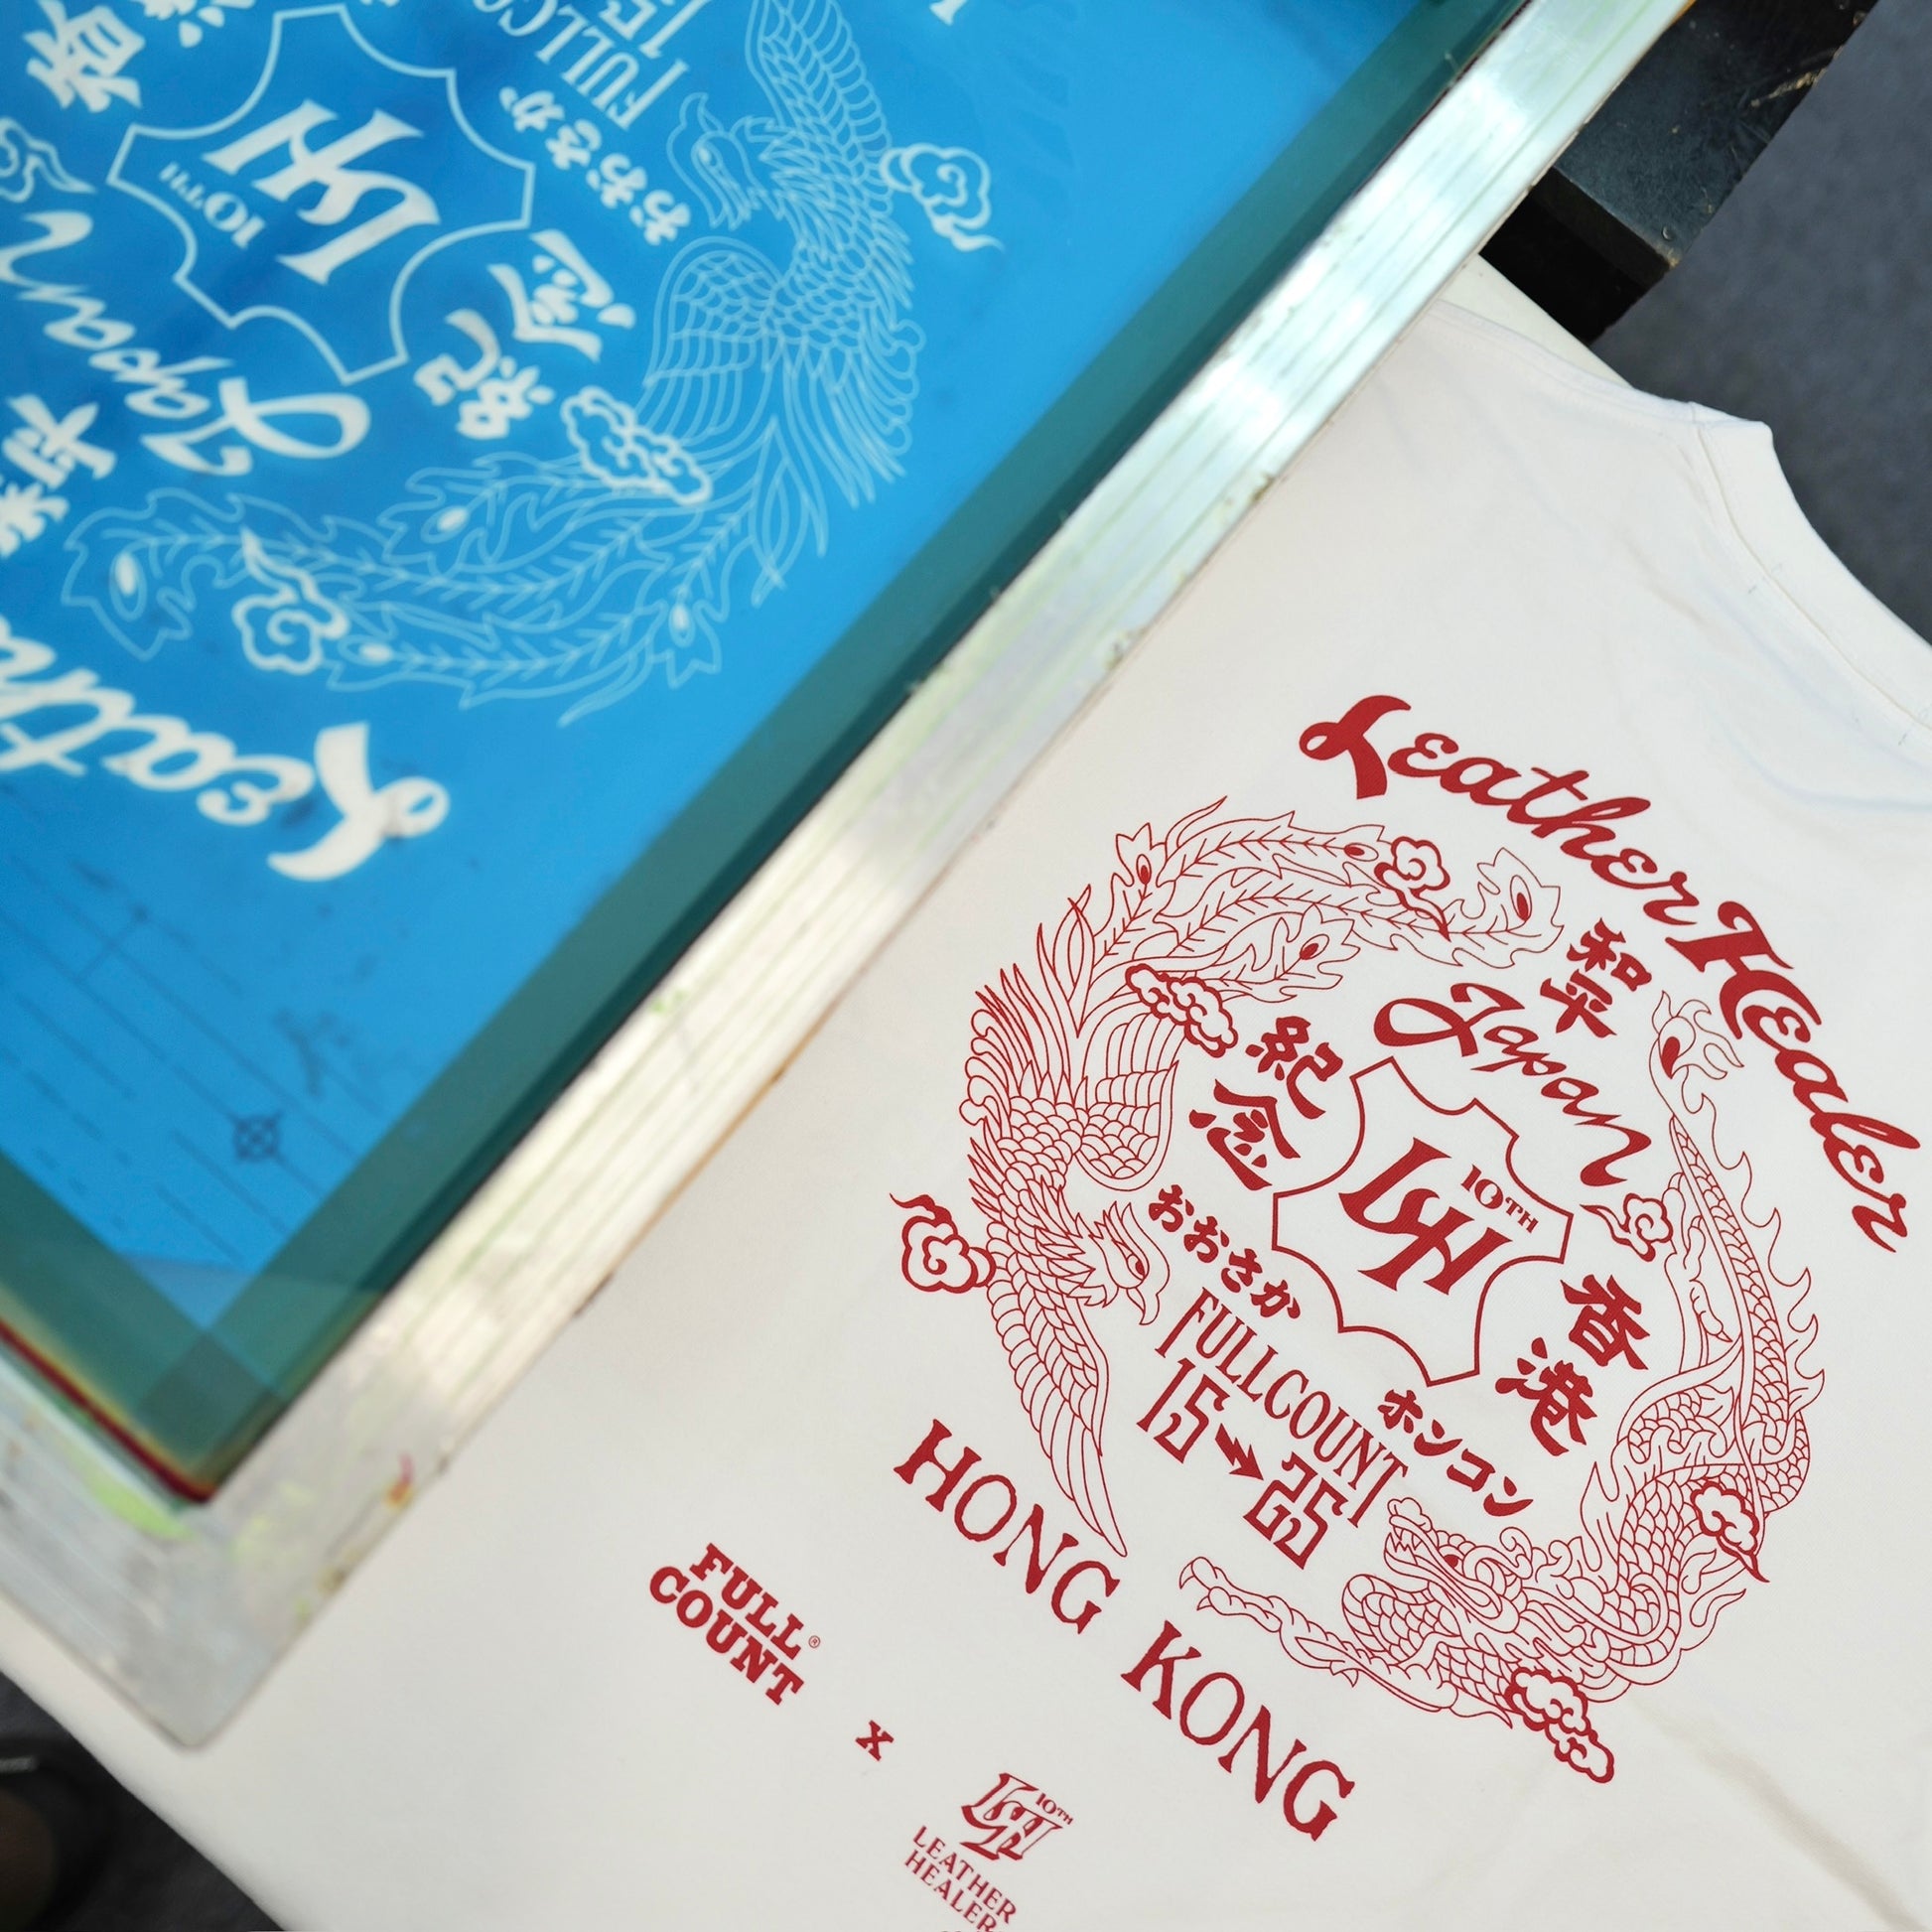 Leather Healer
和平
Japan
紀念
10TH
LH
香港
おおさか
ホンコン
FULLCOUNT
15→25
HONG KONG
FULL
COUNT®
X
LH 10TH
LEATHER
HEALER
Leath
Japan
紀念
10TH
LH
おおさか
FULLCO
15